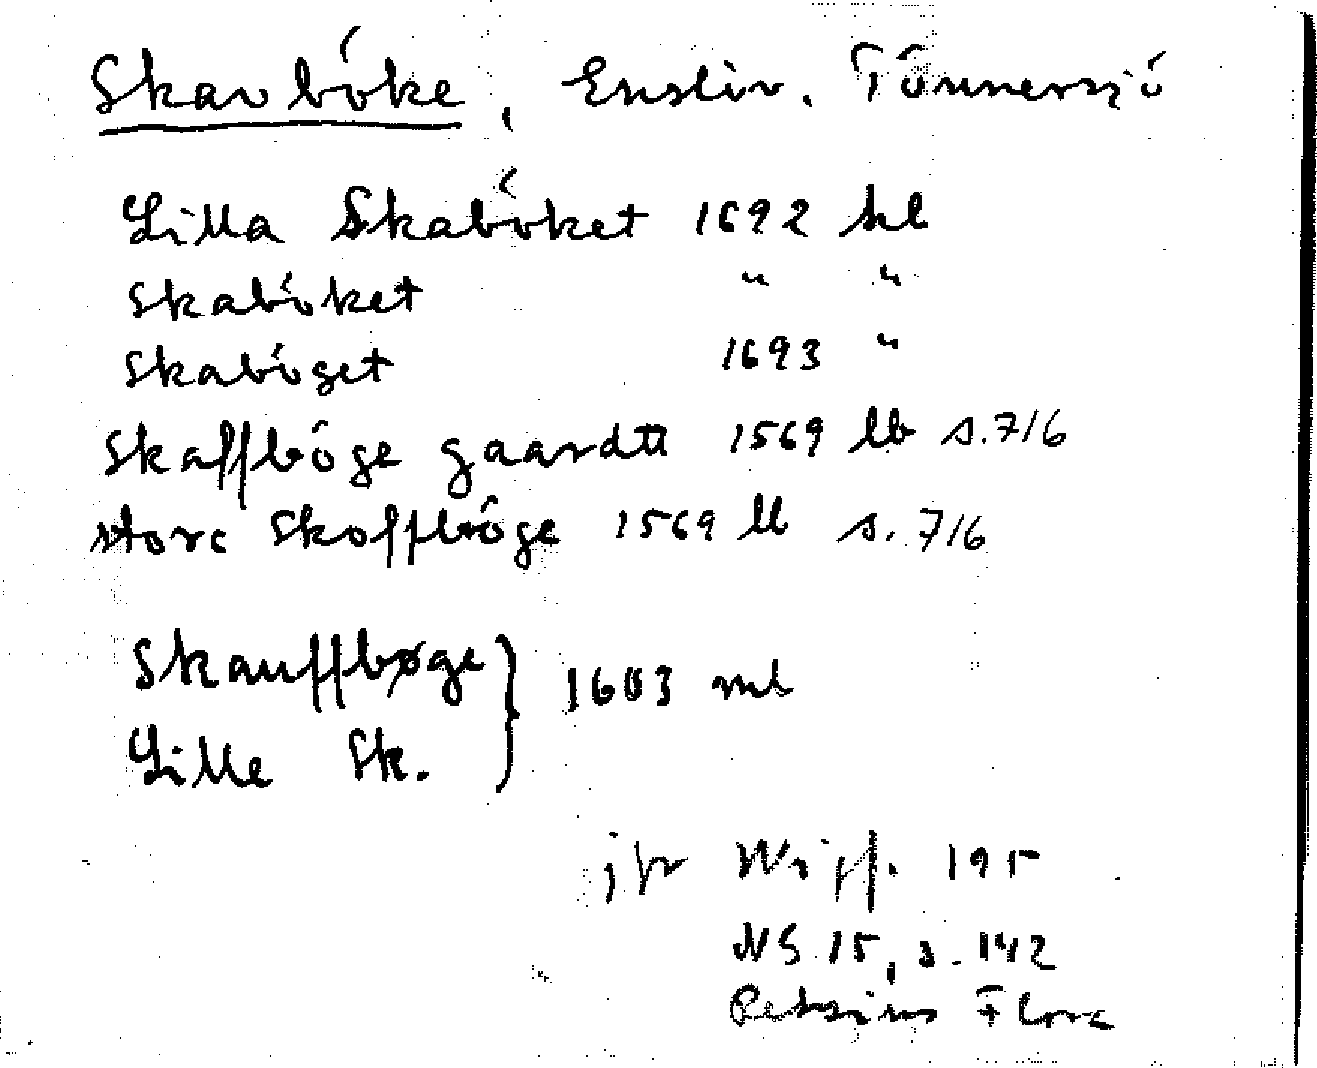 Skavböke, Enslöv. Tönnersjö
Lilla Skaböket 1692 hl
Skaböket " "
Skaböget 1693 "
Skaffböge gaardtt 1569 lb s. 716
store Skoffböge 1569 lb s. 716
Skauffbøge } 1603 ml
Lille Sk.
jfr Wijff. 195
NS 15, s. 142
Retzius Flora